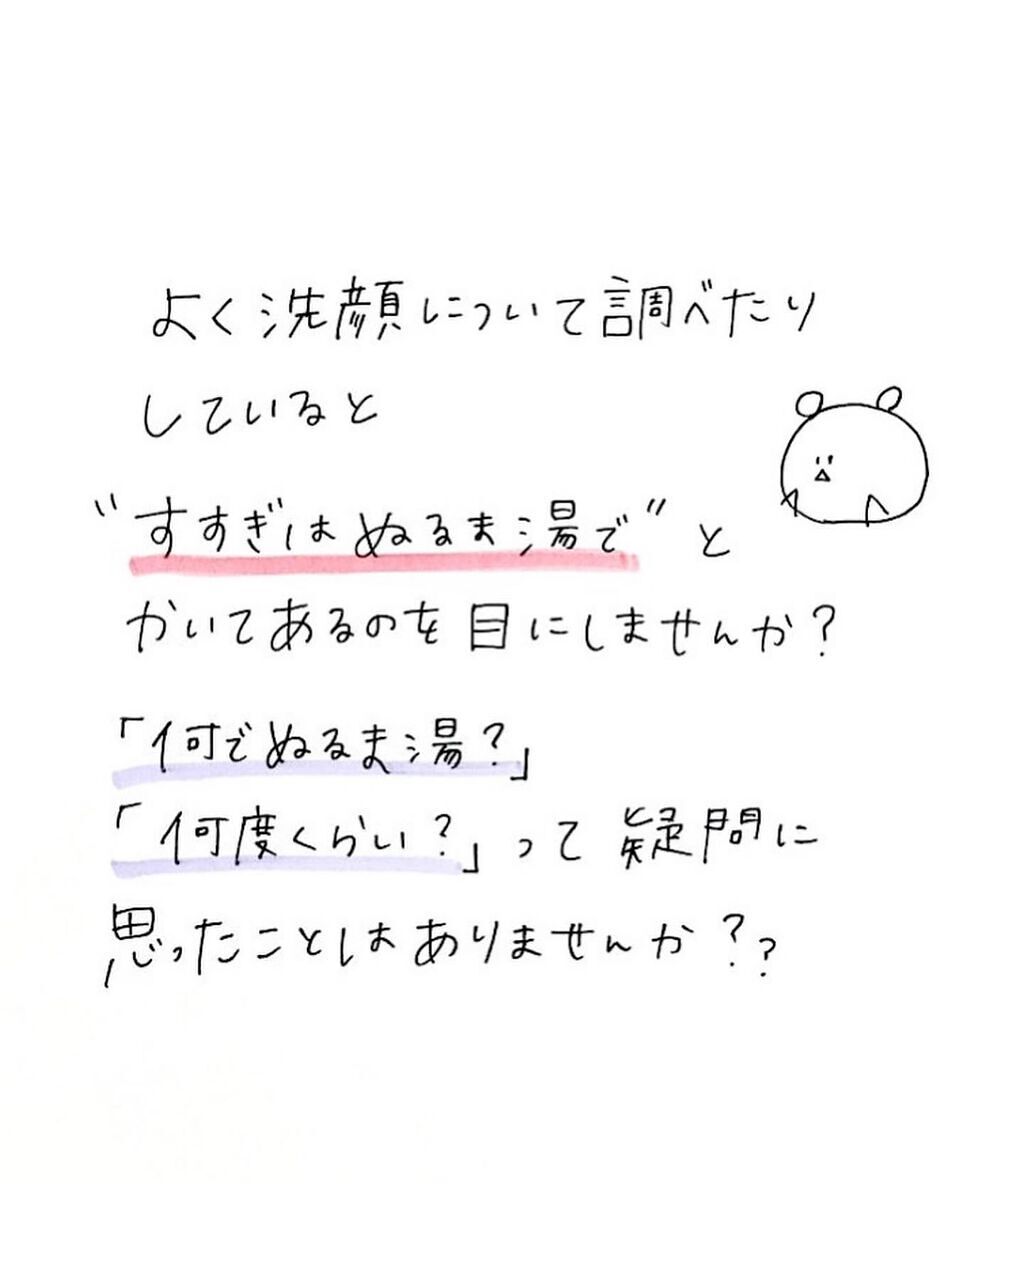 よく洗顔について調べたり
していると
"すすぎはぬるま湯で"と
かいてあるのを目にしませんか?
「何でぬるま湯?」
「何度くらい?」って疑問に
思ったことはありませんか??